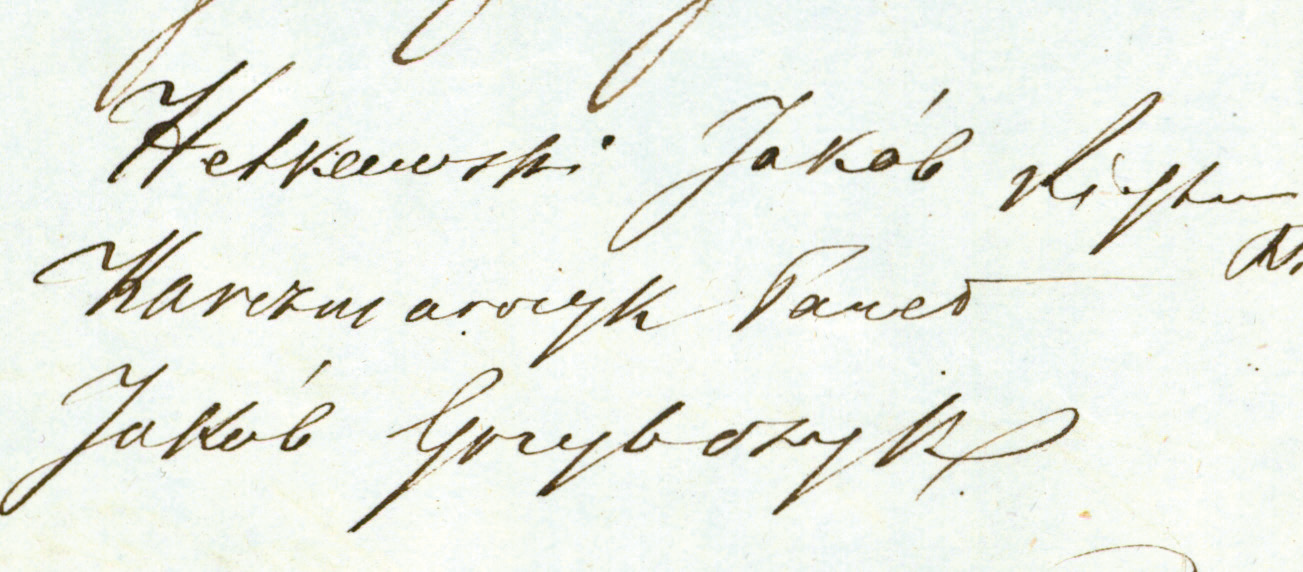 Hetkewski Jakób
Karczmarczyk Paweł
Jakób Grzybczyk